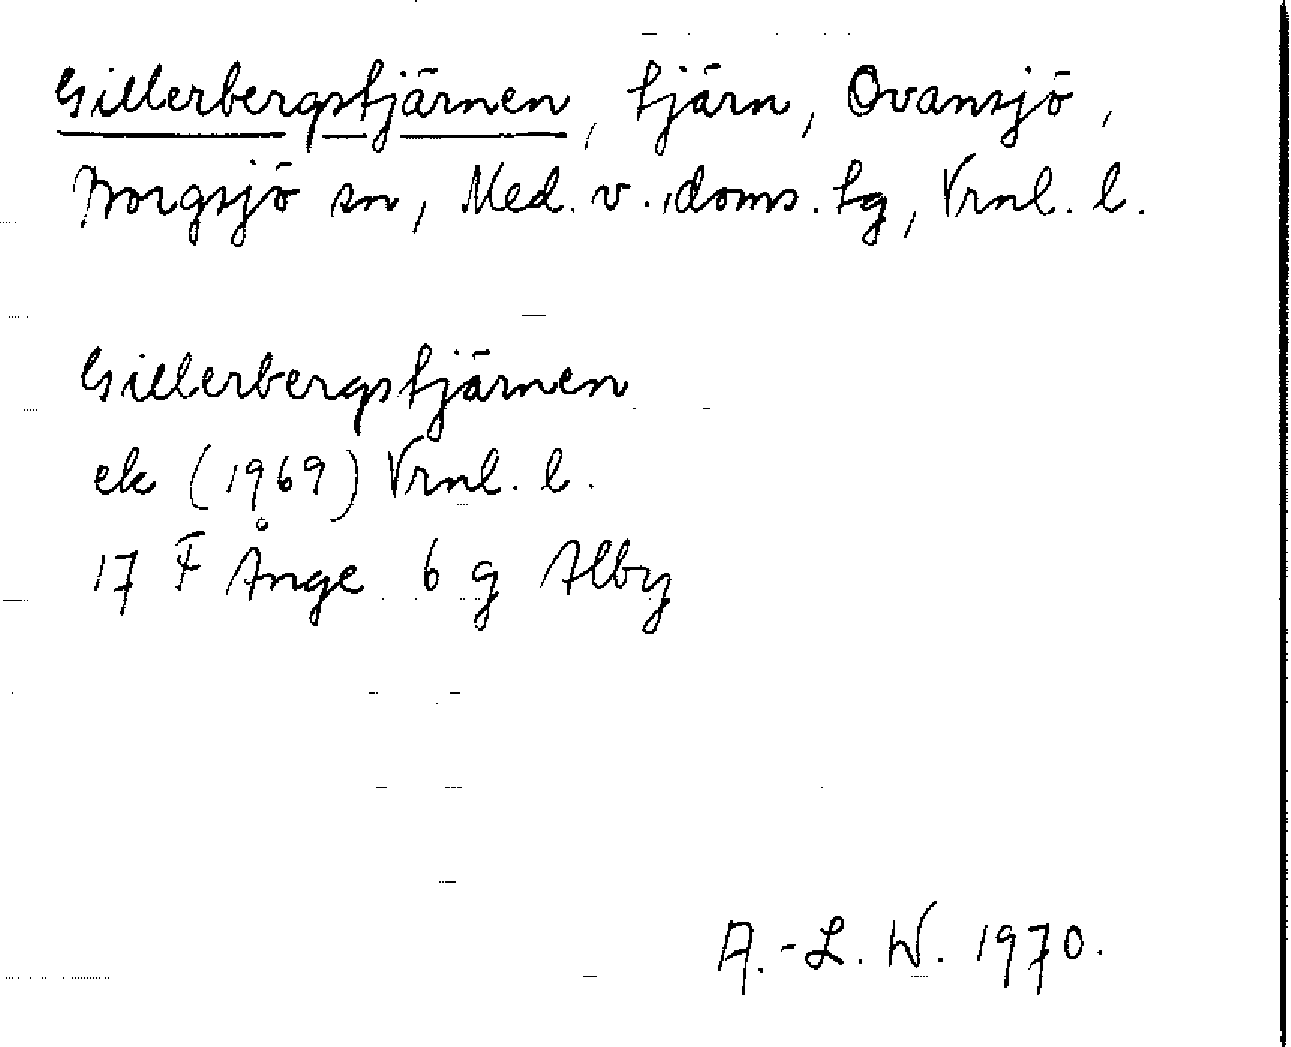 Gillerbergstjärnen, tjärn, Ovansjö,
Borgsjö sn, Med. v. doms. tg, Vrnl. l.
Gillerbergstjärnen
ek (1969) Vrnl. l.
17 F Ånge 6 g Alby
A.-L. W. 1970.